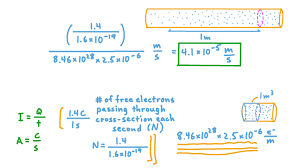 (1.4 / 1.6×10⁻¹⁹) / 8.46×10²⁸ × 2.5×10⁻⁶ m/s = 4.1×10⁻⁵ m/s
1m
I = Q/t
A = C/s
1.4C / 1s
# of free electrons
passing through
cross-section each
second (N)
N = 1.4 / 1.6×10⁻¹⁹
1m³
8.46×10²⁸ × 2.5×10⁻⁶ e⁻/m